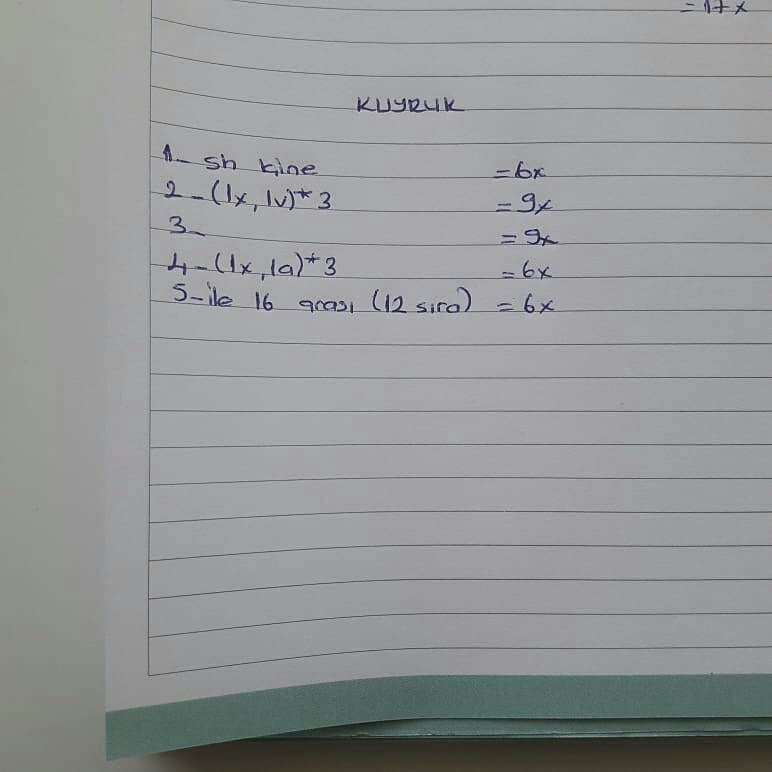 = 17x
KUYRUK
1- sh içine = 6x
2- (1x, 1v)*3 = 9x
3- = 9x
4- (1x, 1a)*3 = 6x
5- ile 16 arası (12 sıra) = 6x